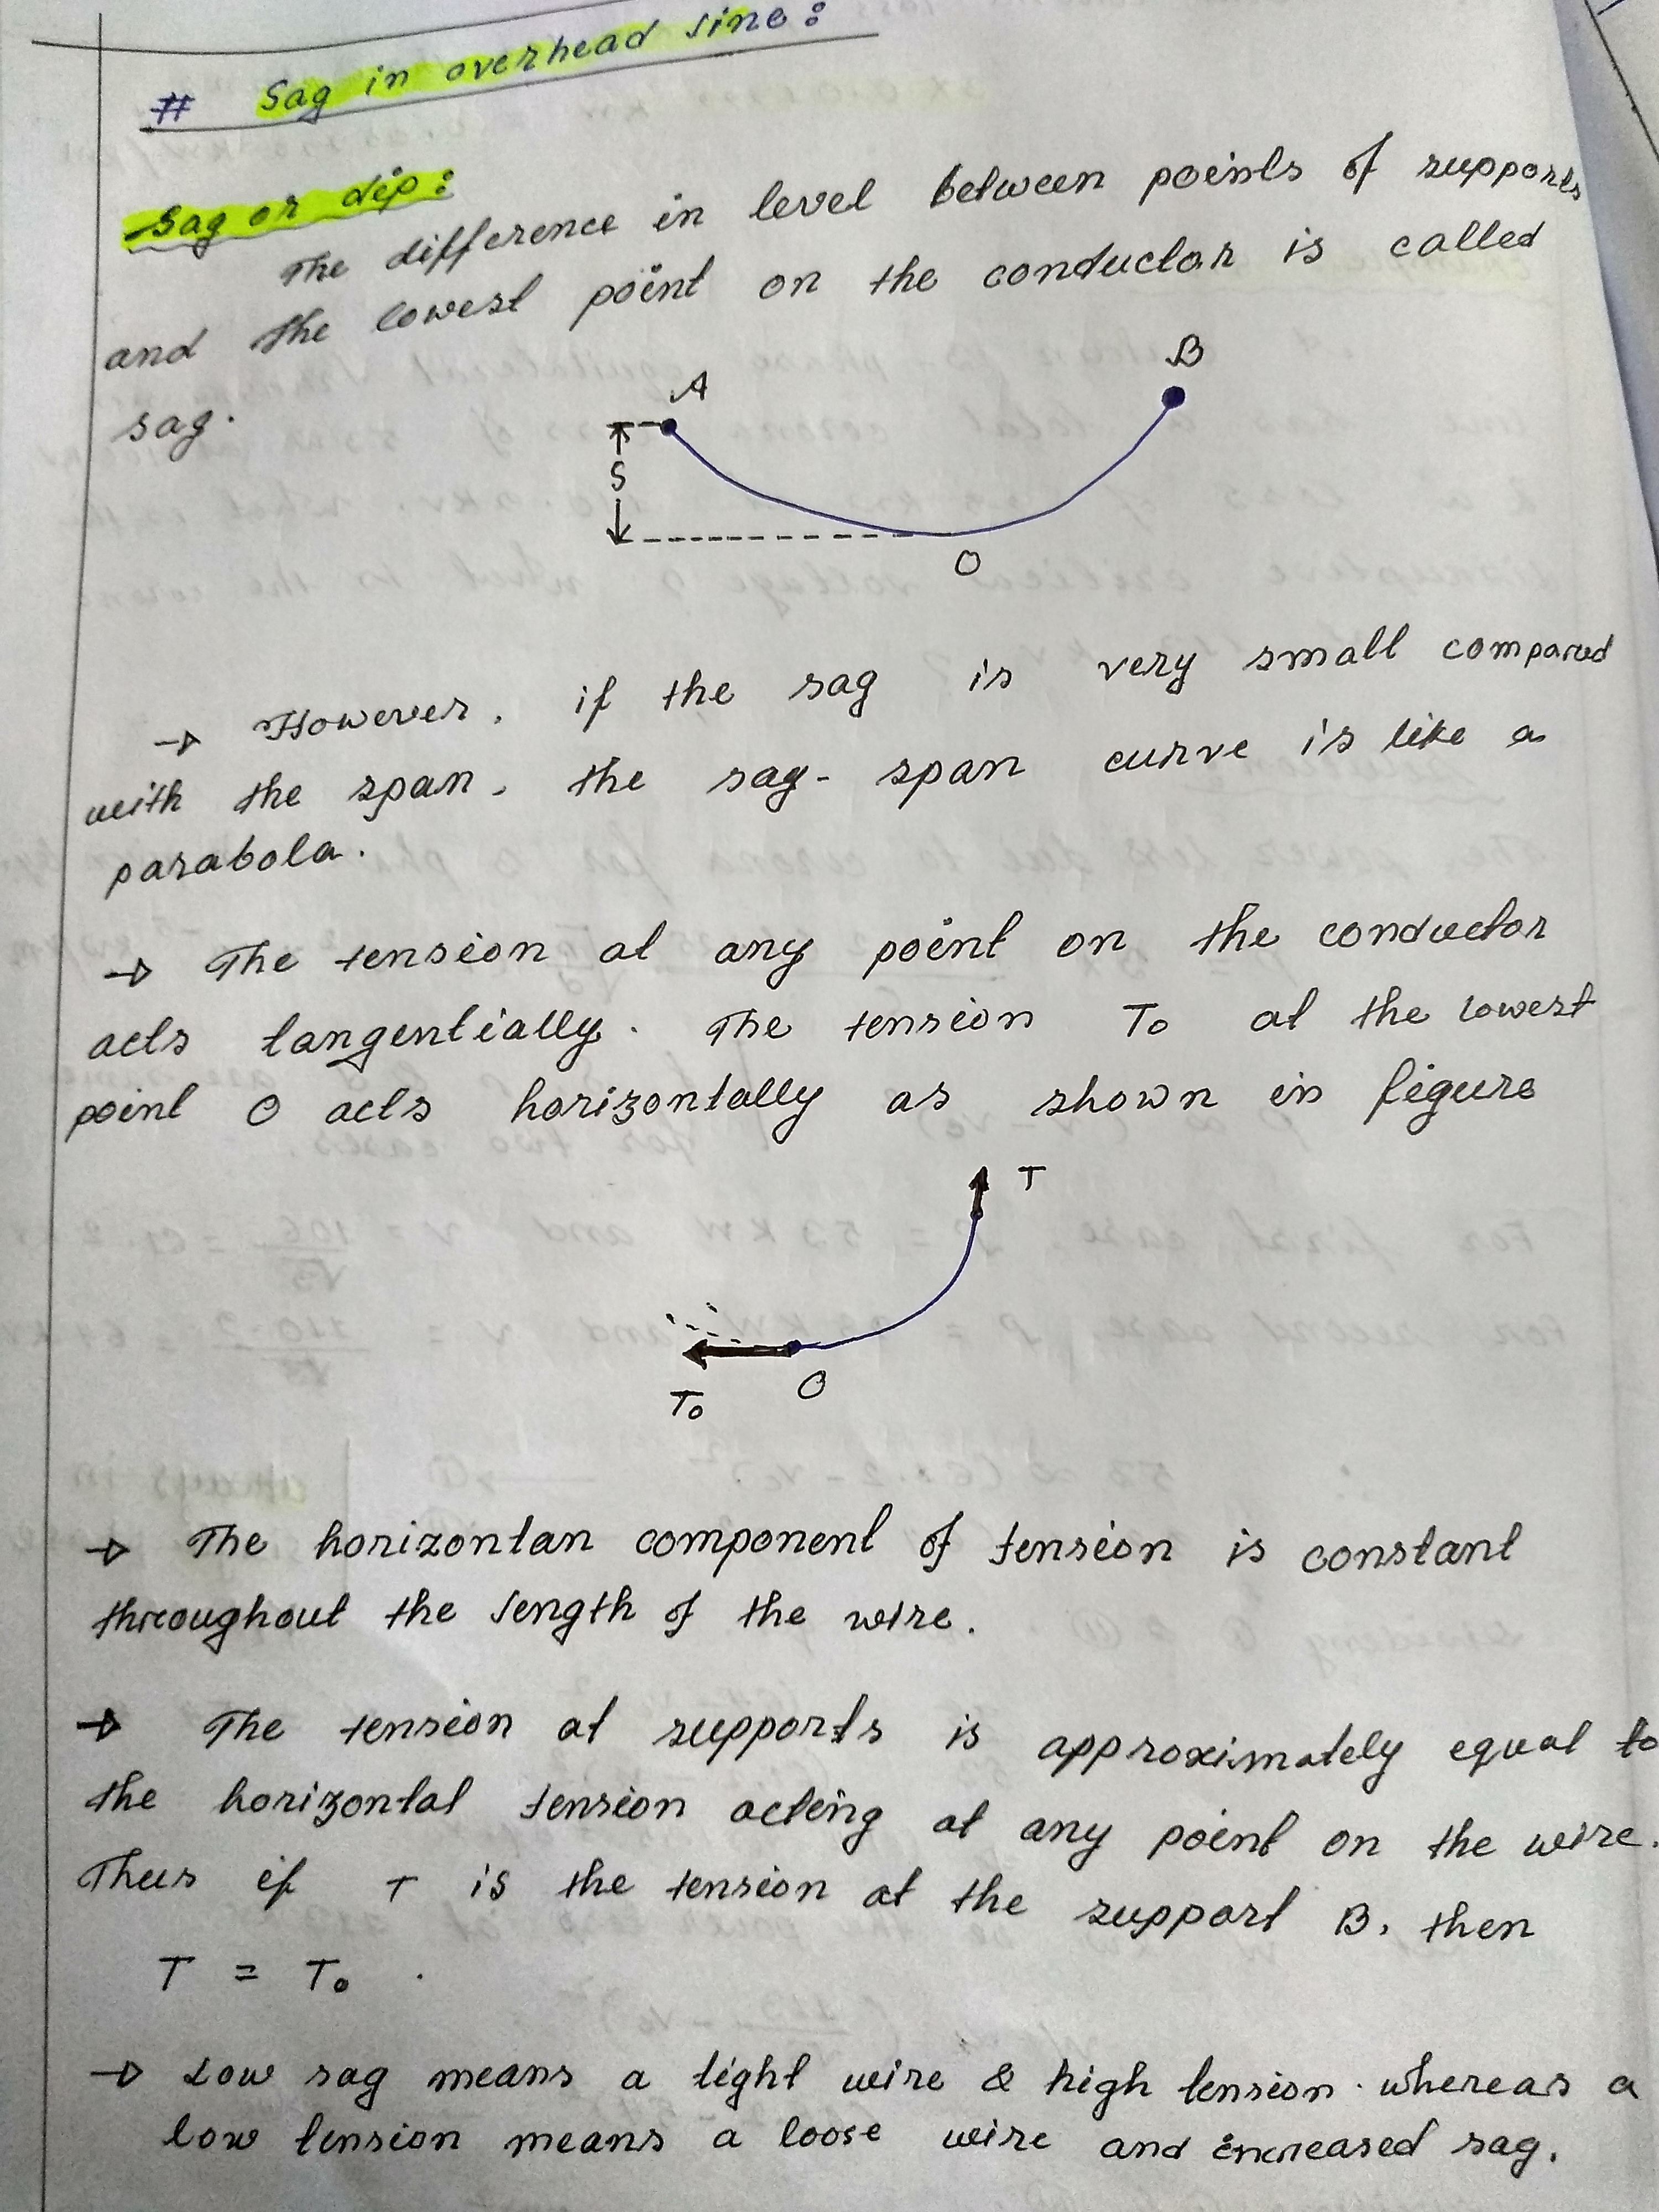 # Sag in overhead line:
Sag or dip:
The difference in level between points of supports
and the lowest point on the conductor is called
sag.
A
B
S
O
→ However, if the sag is very small compared
with the span, the sag-span curve is like a
parabola.
→ The tension at any point on the conductor
acts tangentially. The tension T₀ at the lowest
point O acts horizontally as shown in figure
T
T₀
O
→ The horizontan component of tension is constant
throughout the length of the wire.
→ The tension at supports is approximately equal to
the horizontal tension acting at any point on the wire.
Thus if T is the tension at the support B, then
T = T₀.
→ Low sag means a tight wire & high tension. whereas a
low tension means a loose wire and increased sag.